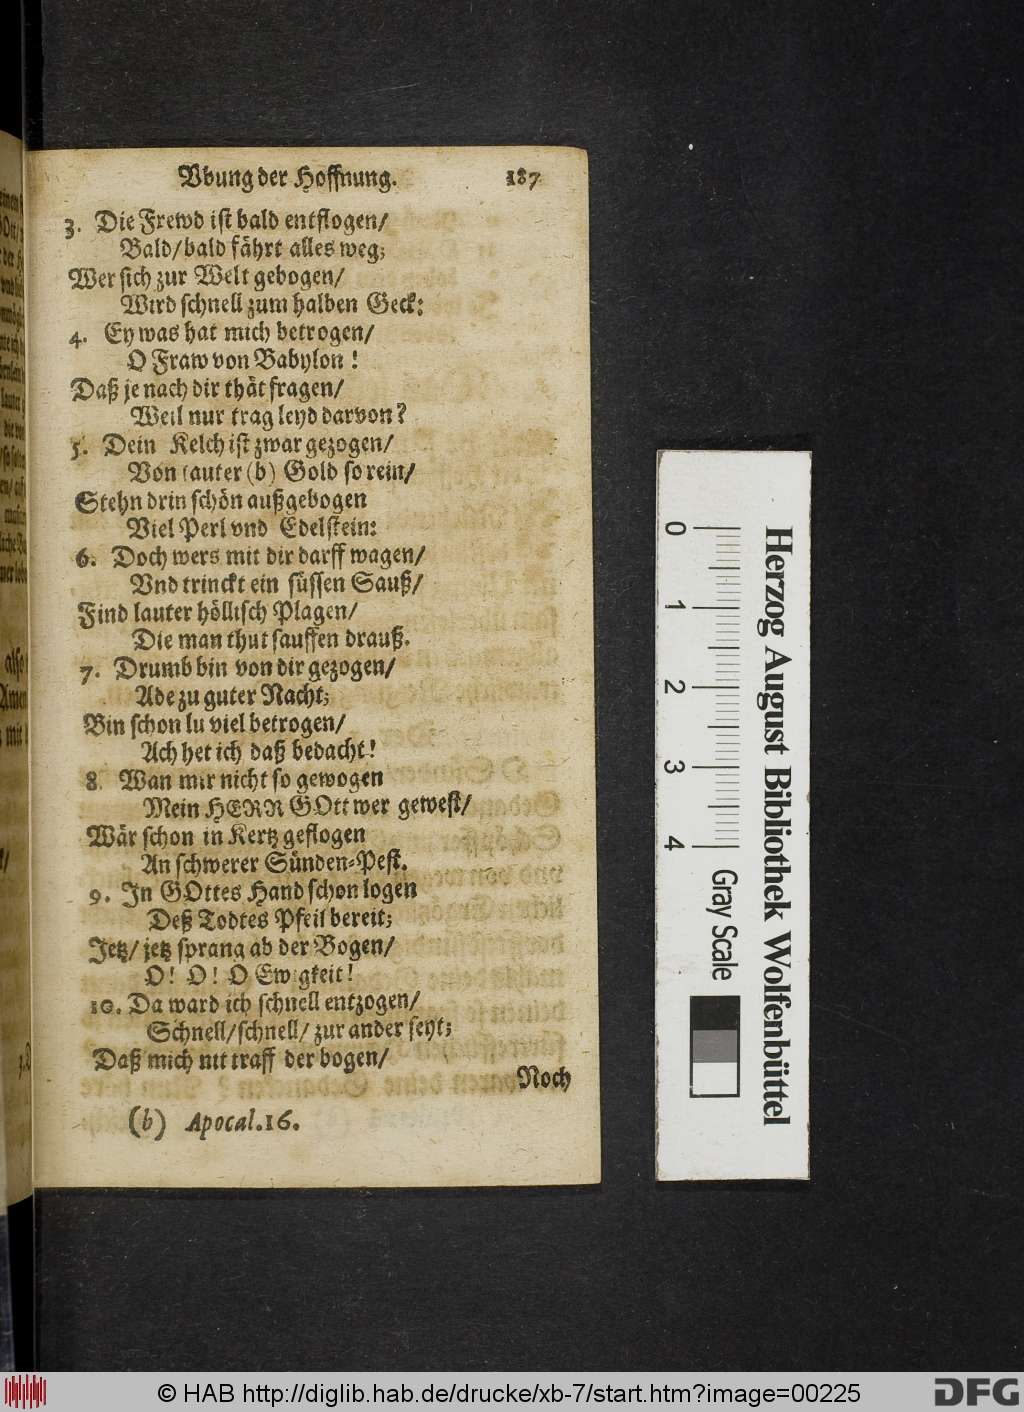 Vbung der Hoffnung. 187
3. Die Frewd ist bald entflogen/
Bald/bald fährt alles weg;
Wer sich zur Welt gebogen/
Wird schnell zum halben Geck:
4. Ey was hat mich betrogen/
O Fraw von Babylon!
Daß je nach dir thät fragen/
Weil nur trag leyd darvon?
5. Dein Kelch ist zwar gezogen/
Von lauter (b) Gold so rein/
Stehn drin schön außgebogen
Viel Perl vnd Edelstein:
6. Doch wers mit dir darff wagen/
Vnd trinckt ein süssen Sauß/
Find lauter höllisch Plagen/
Die man thut sauffen drauß.
7. Drumb bin von dir gezogen/
Ade zu guter Nacht;
Bin schon lu viel betrogen/
Ach het ich daß bedacht!
8. Wan mir nicht so gewogen
Mein HERR GOtt wer gewest/
Wär schon in Kertz geflogen
An schwerer Sünden-Pest.
9. In GOttes Hand schon logen
Deß Todtes Pfeil bereit;
Jetz/ jetz sprang ab der Bogen/
O! O! O Ewigkeit!
10. Da ward ich schnell entzogen/
Schnell/schnell/ zur ander seyt;
Daß mich nit traff der bogen/
Noch
(b) Apocal.16.
0 1 2 3 4
Gray Scale
Herzog August Bibliothek Wolfenbüttel
© HAB http://diglib.hab.de/drucke/xb-7/start.htm?image=00225
DFG